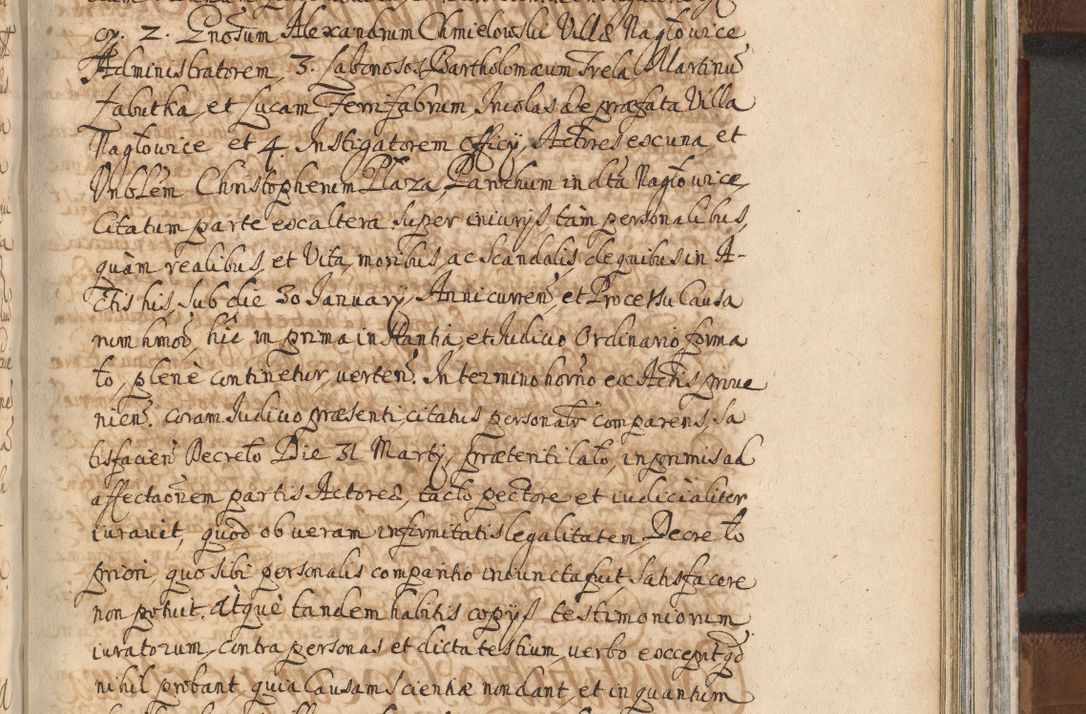 cz. 2. Gnosum Alexandrum Chmielowski Villæ Nagłowice
Administratorem, 3. Labonosos Bartholomæum Trela, Martinũ
Łabutka, et Lucam Ferrifabrum, Incolas de præfata Villa
Nagłowice et 4. Instigatorem Officÿ, Actores ex una, et
Vnoblem Christopherum Płaza, Parochum in dta Nagłowice,
Citatum parte ex altera. Super iniurijs, tàm personalibus,
quàm realibus, et Vita, moribus ac scandalis, de quibus in A-
ctis his, sub die 30 January Anni curren, et Processu Causa
rum hmoi, hic in prima instantia, et Iudicio Ordinario forma
to, plenè continetur, verten. In termino horno ex Actis prove
nien. coram Iudicio præsenti, citatus personalr comparens, sa
tisfacien Decreto Die 31 Marty præterit lato, in primis ad
affectaonem partis Actoreæ, tacto pectore et iudicialiter
iuravit, quod ob veram infirmitatis legalitatem, Decreto
priori quo sibi personalis comparitio iniuncta fuit, satisfacere
non potuit. Atque tandem habitis copijs testimoniorum
iuratorum, contra personas et dicta testium, verbo excepit qd
nihil probant, quia Causam scientiæ non dant, et in quantum